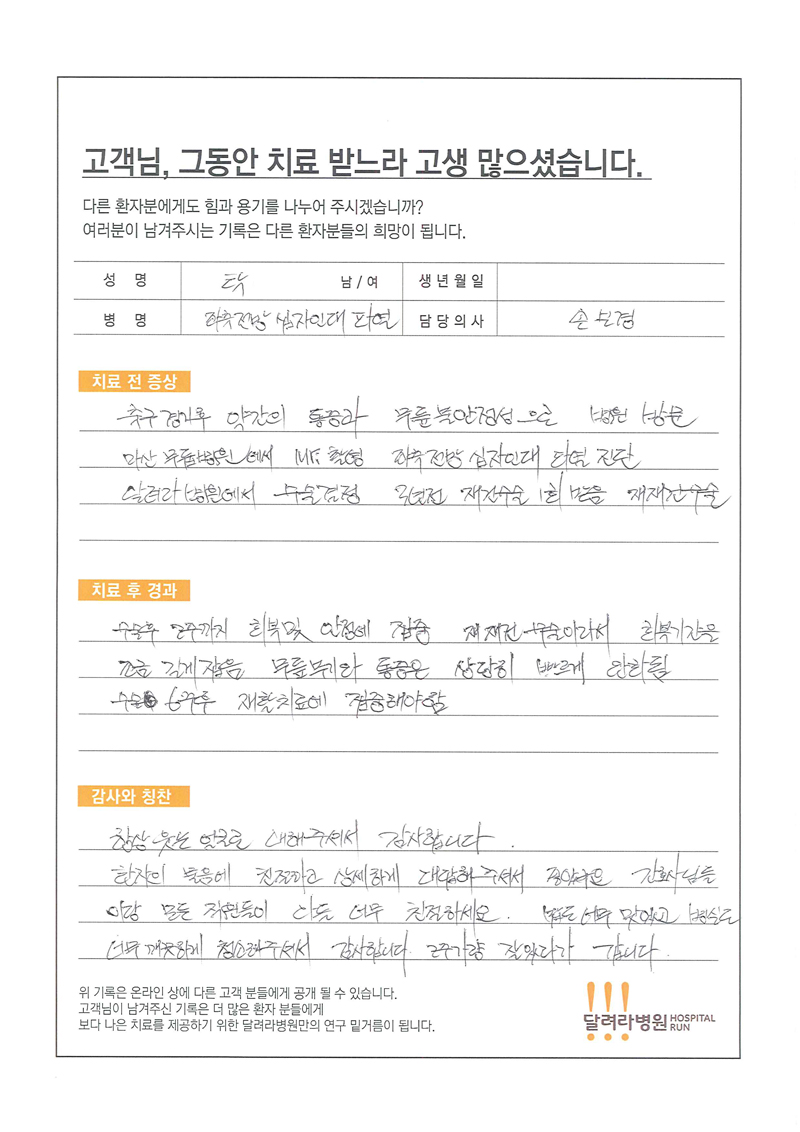 고객님, 그동안 치료 받느라 고생 많으셨습니다.
다른 환자분에게도 힘과 용기를 나누어 주시겠습니까?
여러분이 남겨주시는 기록은 다른 환자분들의 희망이 됩니다.
성 명 탁 남 / 여 생 년 월 일
병 명 좌측전방 십자인대 파열 담 당 의 사 손보경
치료 전 증상
축구 경기후 약간의 통증과 무릎 불안정성으로 병원 방문
마산 무릎병원에서 MRI 촬영 좌측전방 십자인대 파열 진단
달려라병원에서 수술결정 2년전 재건수술 1회 받음 재재건수술
치료 후 경과
수술후 2주까지 회복 및 안정에 집중 재재건 수술이라서 회복기간은
조금 길게 잡음 무릎붓기와 통증은 상당히 빠르게 완화됨
수술 6주후 재활치료에 집중해야함
감사와 칭찬
항상 웃는 얼굴로 대해주셔서 감사합니다.
환자의 물음에 친절하고 상세하게 대답해 주셔서 좋았어요 간호사님들
이랑 모든 직원들이 다들 너무 친절하세요. 밥도 너무 맛있고 병실도
너무 깨끗하게 청소해주셔서 감사합니다. 2주가량 잘있다가 갑니다.
위 기록은 온라인 상에 다른 고객 분들에게 공개 될 수 있습니다.
고객님이 남겨주신 기록은 더 많은 환자 분들에게
보다 나은 치료를 제공하기 위한 달려라병원만의 연구 밑거름이 됩니다.
달려라병원 HOSPITAL RUN